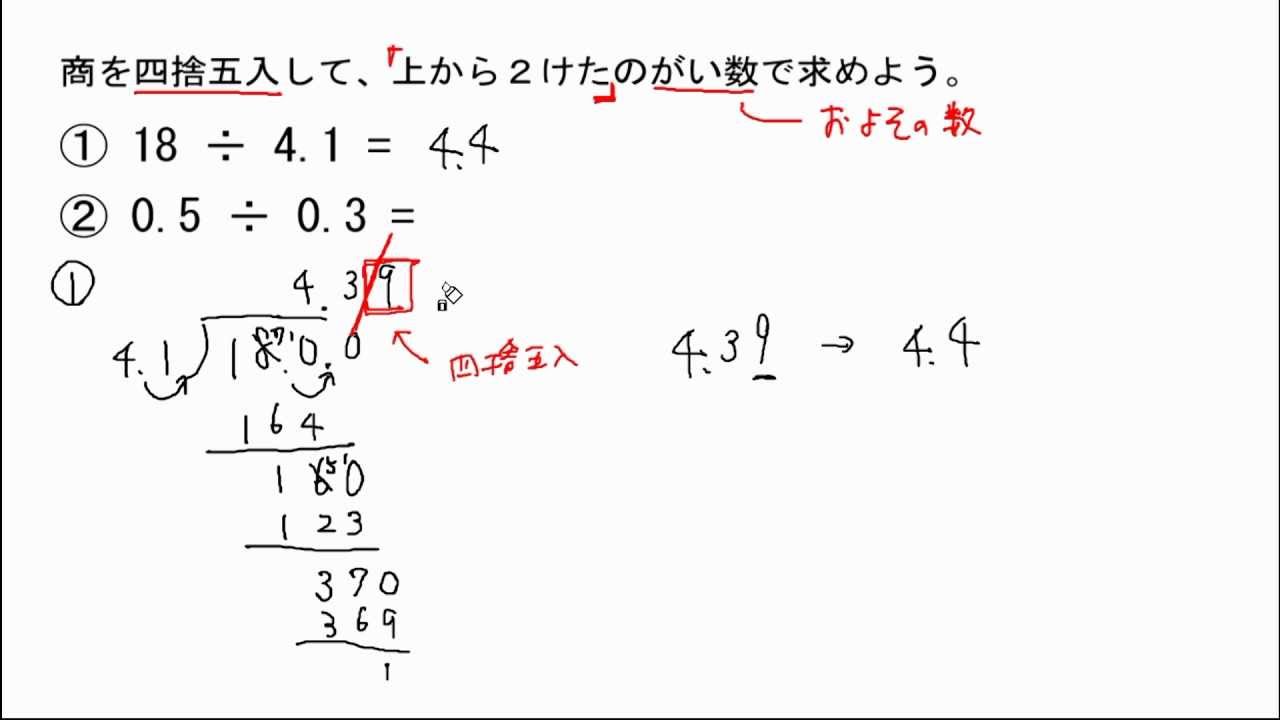 商を四捨五入して、「上から２けた」のがい数で求めよう。
およその数
① 18 ÷ 4.1 = 4.4
② 0.5 ÷ 0.3 =
①
4.39
4.1)180.0
四捨五入
4.39 → 4.4
164
160
123
370
369
1